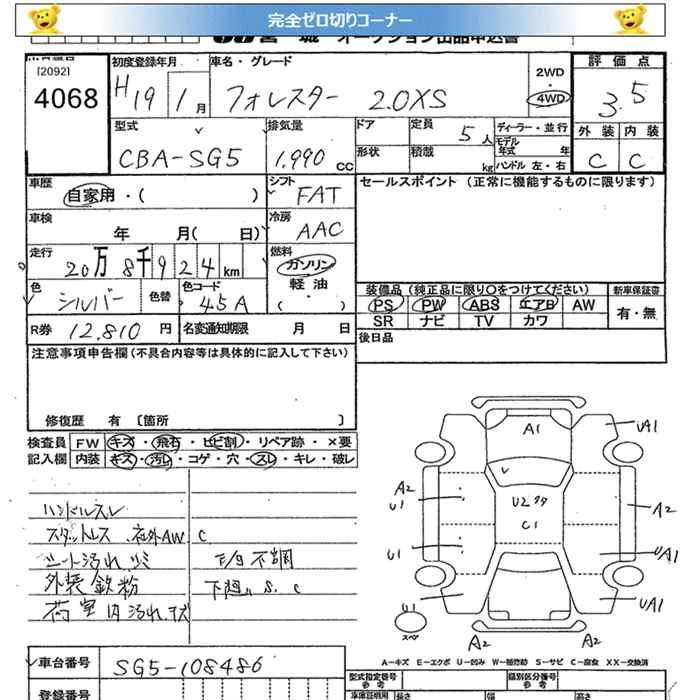 完全ゼロ切りコーナー
宮 城 オークション出品申込書
[2092]
4068
初度登録年月
H19 1月
車名・グレード
フォレスター 2.0XS
2WD
・
4WD
評価点
3.5
型式
CBA-SG5
排気量
1,990 CC
ドア
定員
5人
ディーラー・並行
形状
積載
kg
モデル年式 年
ハンドル 左・右
外装 内装
C C
車歴
自家用・( )
シフト
FAT
セールスポイント (正常に機能するものに限ります)
車検
年 月( 日)
冷房
AAC
走行
20万8千924km
燃料
ガソリン
軽油
( )
色
シルバー
色替
色コード
45A
装備品 (純正品に限り〇をつけてください)
新車保証書
PS PW ABS エアB AW
有・無
SR ナビ TV カワ
R券 12,810円
名変通知期限 月 日
後日品
注意事項申告欄(不具合内容等は具体的に記入して下さい)
修復歴 有 〔箇所 〕
検査員 FW キズ・飛石・ヒビ割・リペア跡・×要
記入欄 内装 キズ・汚れ・コゲ・穴・スレ・キレ・破レ
ハンドルスレ
スタットレス 社外AW C
シート汚れ シミ
外装 鉄粉 下廻り S. C
荷室内汚れ.キズ
A1
UA1
A2
U1
U2
C1
A2
U1
UA1
U1
スペア
UA1
A2 A2
A-キズ E-エクボ U-凹み W-補修跡 S-サビ C-腐食 XX-交換済
車台番号
SG5-108486
登録番号
型式指定番号
参考
類別区分番号
参考
車庫証明用
長さ 幅 高さ